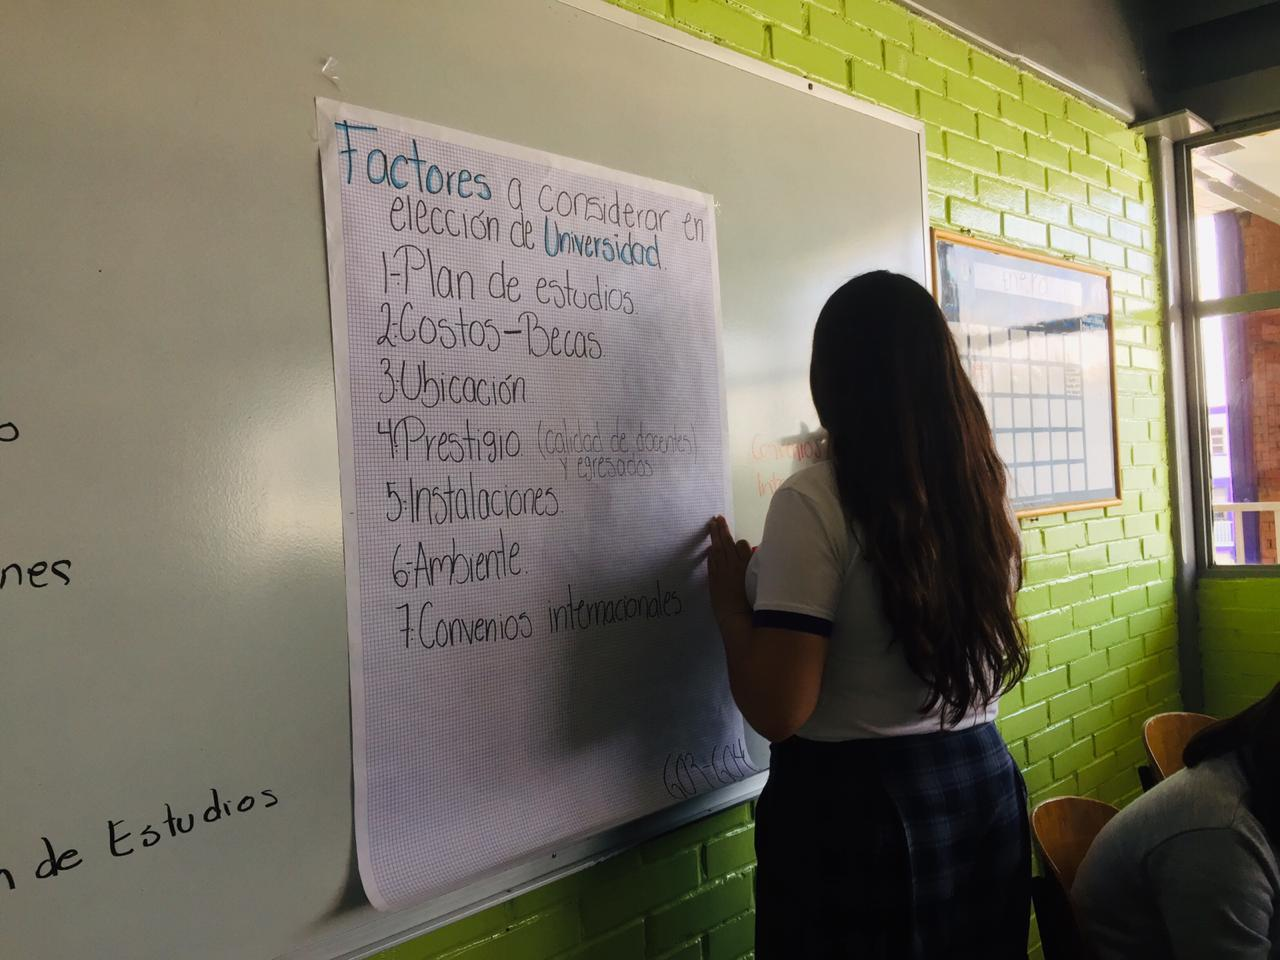 Factores a considerar en
elección de Universidad.
1.-Plan de estudios.
2.-Costos-Becas.
3.-Ubicación
4.-Prestigio (calidad de docentes)
y egresados
5.-Instalaciones.
6.-Ambiente.
7.-Convenios internacionales
603-604
Convenios
nes
de Estudios